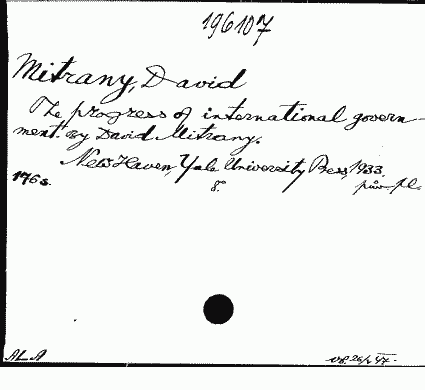 196107
Mitrany, David
The progress of international govern-
ment. By David Mitrany.
New Haven, Yale University Press, 1933.
176 s. 8° pův. pl.
ALA